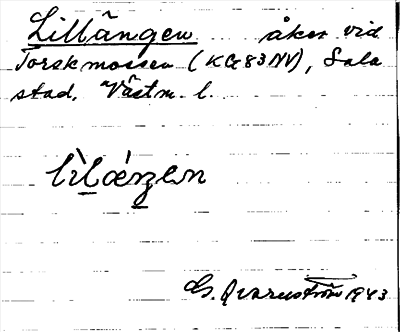 Lillängen åker vid
Torskmossen (KG83NV), Sala
stad. Västm. l.
G. Qvarnström 1943